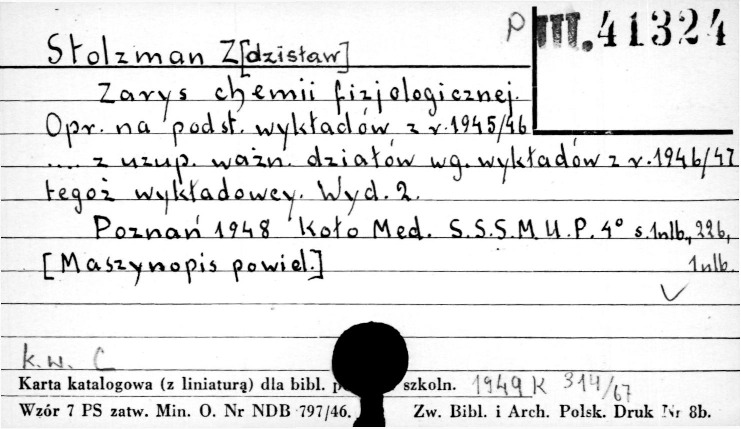 P III. 41324
Stolzman Z[dzisław]
Zarys chemii fizjologicznej.
Opr. na podst. wykładów z r. 1945/46
.... z uzup. ważn. działów wg. wykładów z r. 1946/47
tegoż wykładowcy. Wyd. 2.
Poznań 1948 Koło Med. S.S.S.M.U.P. 4° s. 1nlb., 226,
[Maszynopis powiel.] 1nlb.
k.w. C
Karta katalogowa (z liniaturą) dla bibl. szkoln. 1949 K 314/67
Wzór 7 PS zatw. Min. O. Nr NDB 797/46. Zw. Bibl. i Arch. Polsk. Druk Nr 8b.